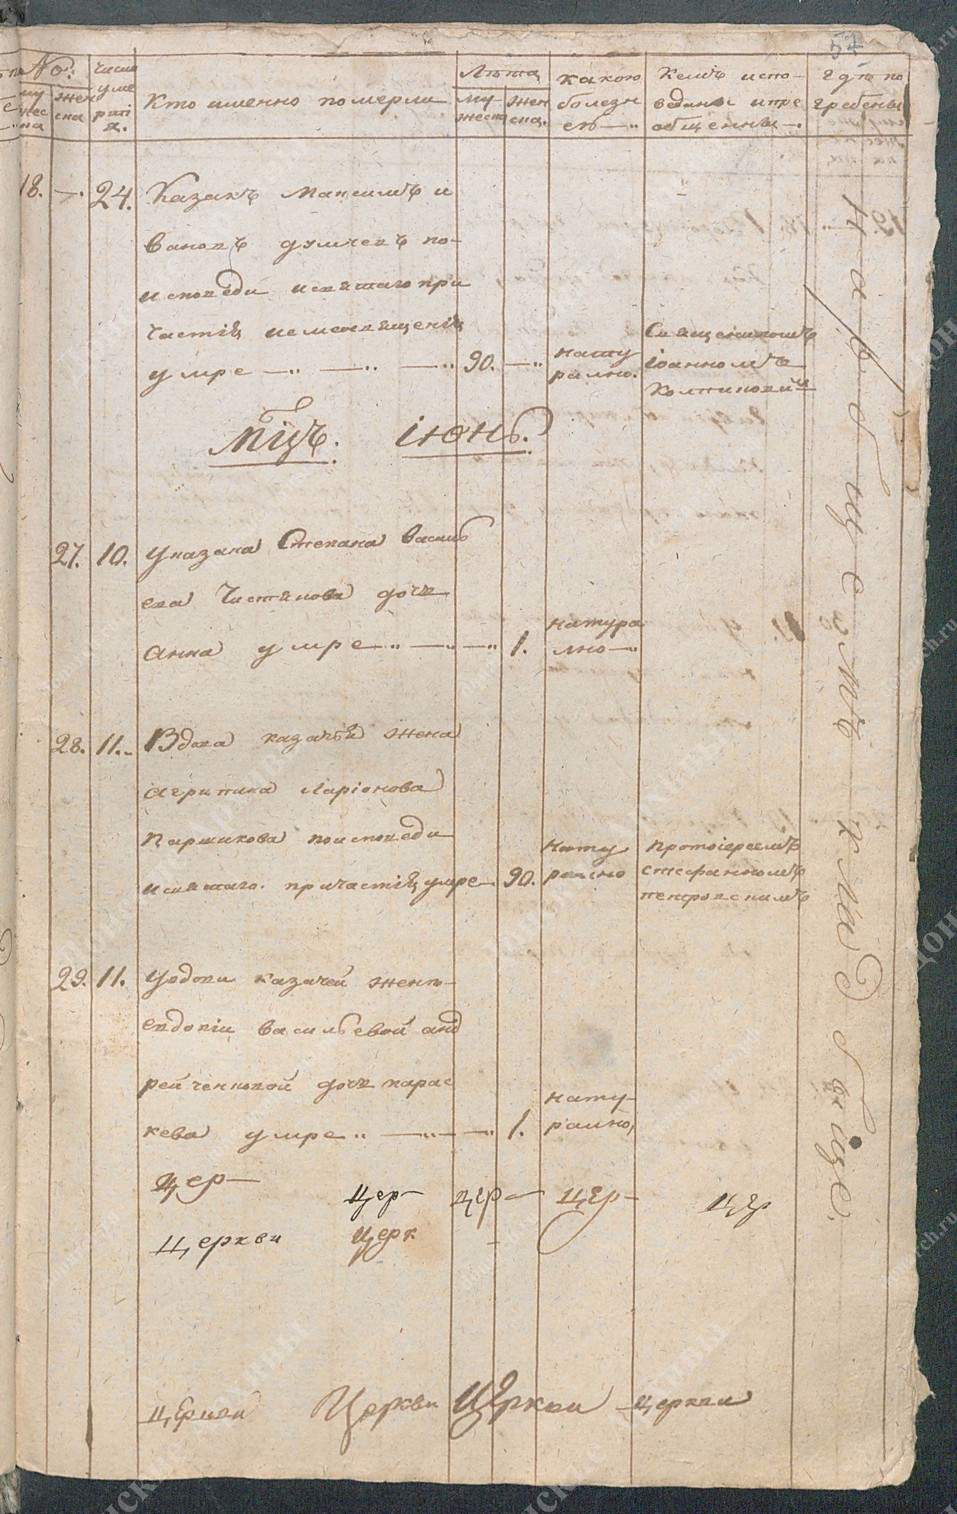 57
№:
число
умер
Кто именно померли
Лѣта
му
женс
жен
ска.
какою
болезн
Кемъ испо-
ведоны ипре
общенны
Гдѣ по
гребены
18. 24. Казакъ Максимъ и
вановъ думчевъ по-
исповѣди исвятаго при
частія
умре 90. нату
рално.
Священникомъ
Іоанномъ
мцъ. іюнь.
27. 10. Указака Степана Василь
ева Чистякова дочь
Анна умре 1. натура
лно
28. 11. Вдова казачья жена
Агрипина Ларіонова
Паршикова поисповеди
исвятаго причастія умре 90. нату
рално
протоіереемъ
стефанномъ
петровскимъ
29. 11. Увдовы казачей жены
евдокіи Васильевой анд
рейченковой дочь парас
кева умре 1. нату-
рално,
На общемъ кладбище.
Цер
Цер
цер
цер
цер
Церкви
Церк
церкви
Церкви
Церкви
церкви